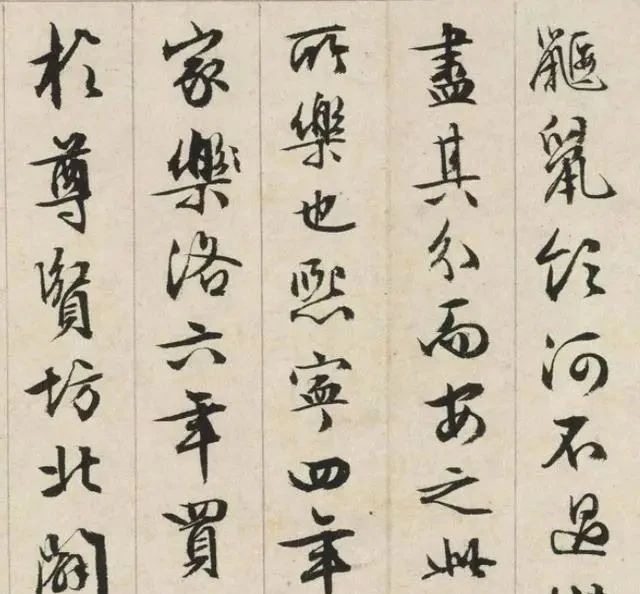 鼴鼠飲河不過
盡其分而安之此
所樂也熙寧四年
家樂洛六年買
於尊賢坊北闢